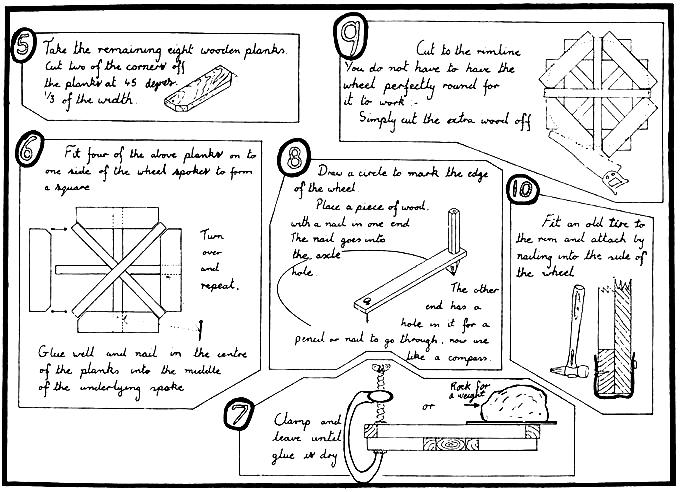 5
Take the remaining eight wooden planks.
Cut two of the corners off
the planks at 45 degres
1/3 of the width.
6
Fit four of the above planks on to
one side of the wheel spokes to form
a square
Turn
over
and
repeat.
Glue well and nail in the centre
of the planks into the middle
of the underlying spoke
7
Clamp and
leave until
glue is dry
or
Rock for
a weight
8
Draw a circle to mark the edge
of the wheel
Place a piece of wood.
with a nail in one end
The nail goes into
the axle
hole.
The other
end has a
hole in it for a
pencil or nail to go through, now use
like a compass.
9
Cut to the rimline
You do not have to have the
wheel perfectly round for
it to work -
Simply cut the extra wood off
10
Fit an old tire to
the rim and attach by
nailing into the side of
the wheel